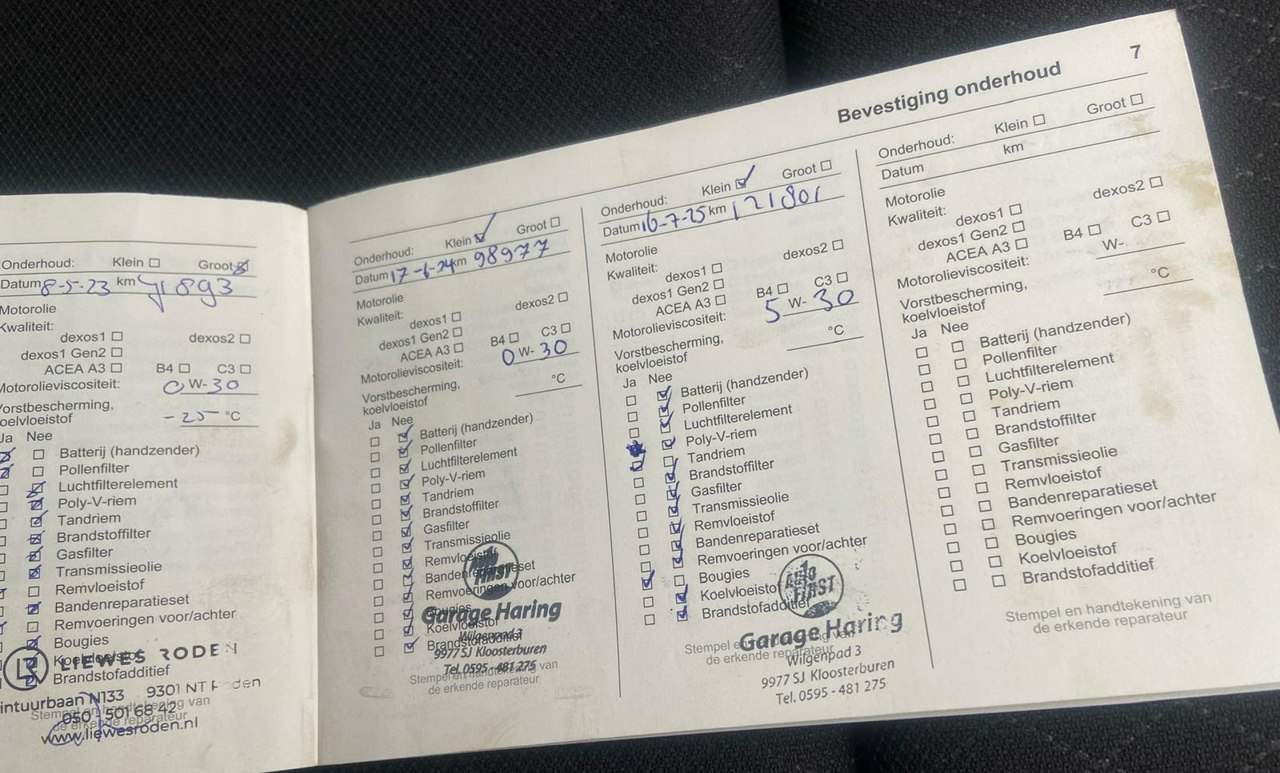 Onderhoud: Klein Groot
Datum 8-5-23 km 71893
Motorolie
Kwaliteit:
dexos1 dexos2
dexos1 Gen2
ACEA A3 B4 C3
Motorolieviscositeit: 0 W- 30
Vorstbescherming,
koelvloeistof -25 °C
Ja Nee
Batterij (handzender)
Pollenfilter
Luchtfilterelement
Poly-V-riem
Tandriem
Brandstoffilter
Gasfilter
Transmissieolie
Remvloeistof
Bandenreparatieset
Remvoeringen voor/achter
Bougies
Koelvloeistof
Brandstofadditief
LIEWES RODEN
N133 9301 NT Roden
Stempel en handtekening van
050 - 501 68 42
de erkende reparateur
www.liewesroden.nl
Onderhoud: Klein Groot
Datum 17-6-24 km 98977
Motorolie
Kwaliteit:
dexos1 dexos2
dexos1 Gen2
ACEA A3 B4 C3
Motorolieviscositeit: 0 W- 30
Vorstbescherming,
koelvloeistof °C
Ja Nee
Batterij (handzender)
Pollenfilter
Luchtfilterelement
Poly-V-riem
Tandriem
Brandstoffilter
Gasfilter
Transmissieolie
Remvloeistof
Bandenreparatieset
Remvoeringen voor/achter
Bougies
Koelvloeistof
Brandstofadditief
AUTO FIRST
Garage Haring
Wilgenpad 3
9977 SJ Kloosterburen
Tel. 0595 - 481 275
Stempel en handtekening van
de erkende reparateur
Bevestiging onderhoud 7
Onderhoud: Klein Groot
Datum 16-7-25 km 121801
Motorolie
Kwaliteit:
dexos1 dexos2
dexos1 Gen2
ACEA A3 B4 C3
Motorolieviscositeit: 5 W- 30
Vorstbescherming,
koelvloeistof °C
Ja Nee
Batterij (handzender)
Pollenfilter
Luchtfilterelement
Poly-V-riem
Tandriem
Brandstoffilter
Gasfilter
Transmissieolie
Remvloeistof
Bandenreparatieset
Remvoeringen voor/achter
Bougies
Koelvloeistof
Brandstofadditief
1 AUTO FIRST
Garage Haring
Stempel en handtekening van
de erkende reparateur
Wilgenpad 3
9977 SJ Kloosterburen
Tel. 0595 - 481 275
Onderhoud: Klein Groot
Datum km
Motorolie
Kwaliteit:
dexos1 dexos2
dexos1 Gen2
ACEA A3 B4 C3
Motorolieviscositeit: W-
Vorstbescherming,
koelvloeistof °C
Ja Nee
Batterij (handzender)
Pollenfilter
Luchtfilterelement
Poly-V-riem
Tandriem
Brandstoffilter
Gasfilter
Transmissieolie
Remvloeistof
Bandenreparatieset
Remvoeringen voor/achter
Bougies
Koelvloeistof
Brandstofadditief
Stempel en handtekening van
de erkende reparateur